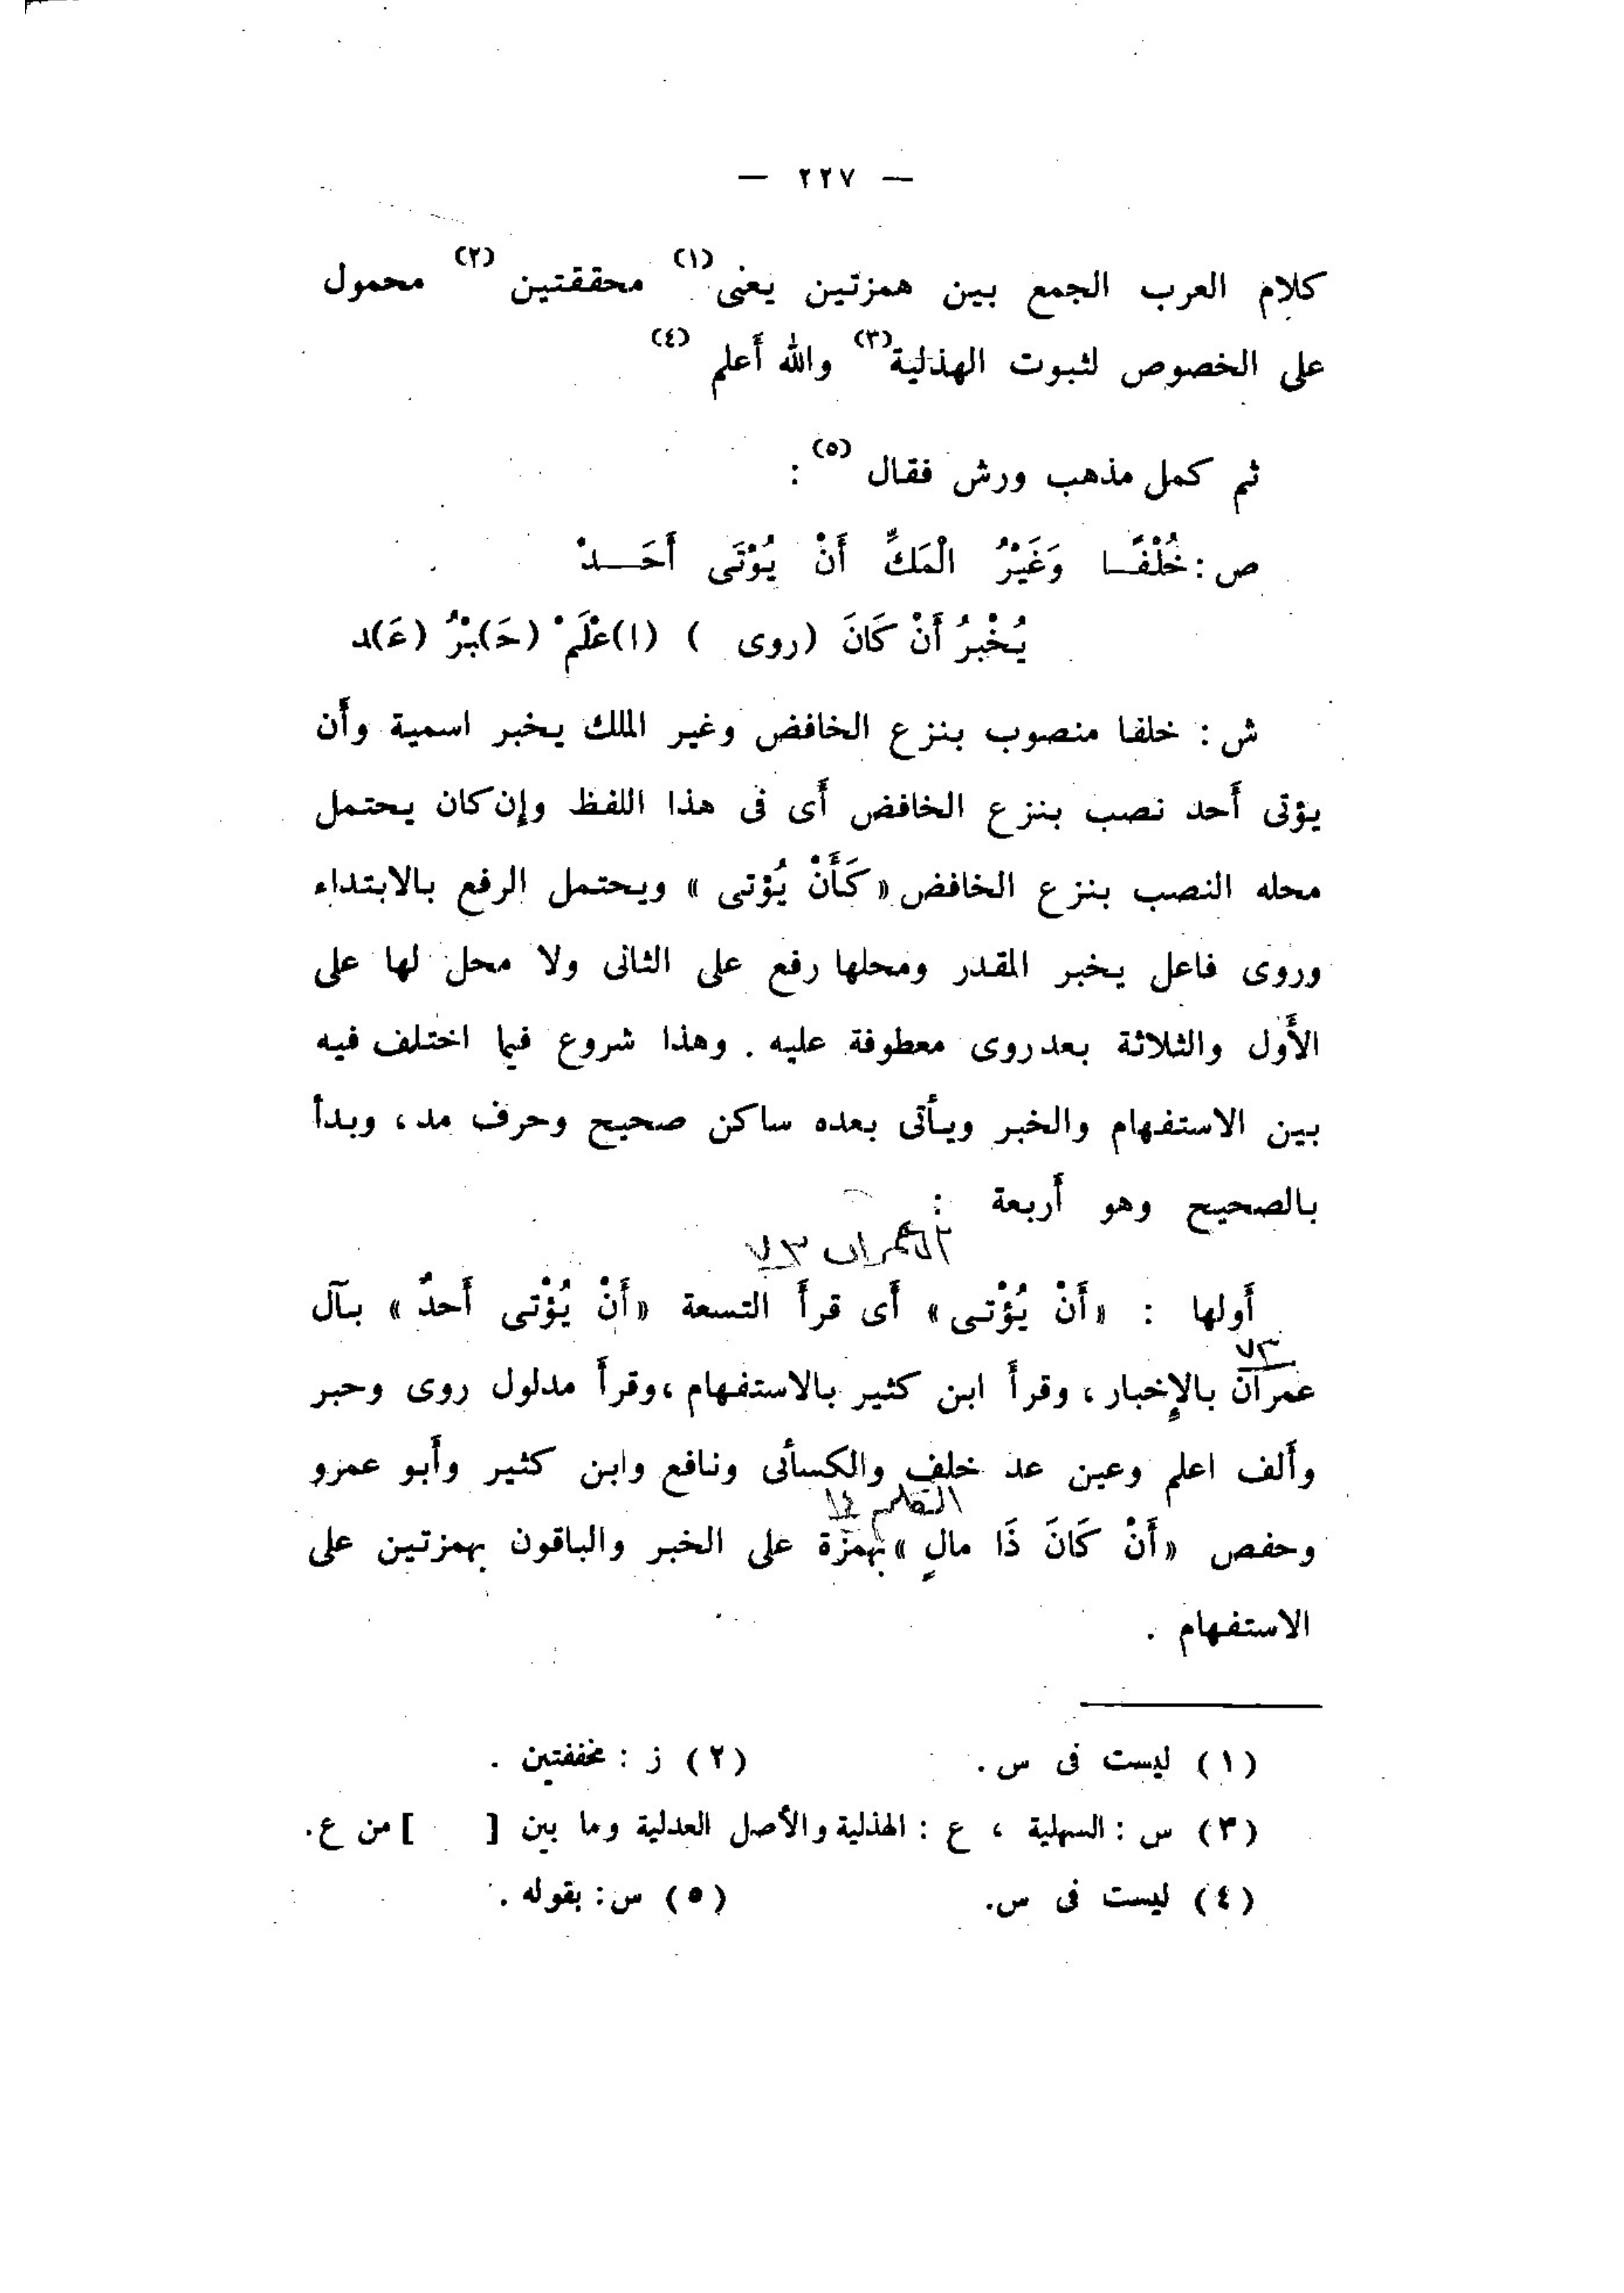 — ٢٢٧ —
كلام العرب الجمع بين همزتين يعنى (١) محققتين (٢) محمول
على الخصوص لثبوت الهذلية (٣) والله أعلم (٤)
ثم كمل مذهب ورش فقال (٥) :
ص : خُلْفًـا وَغَيْرُ الْمَكِّ أَنْ يُوْتَى أَحَـــدْ
يُخْبِرُ أَنْ كَانَ (روى ) (ا)عْلَمْ (حَ)بْرُ (عَ)د
ش : خلفا منصوب بنزع الخافض وغير الملك يخبر اسمية وأَن
يؤتى أَحد نصب بنزع الخافض أَى فى هذا اللفظ وإن كان يحتمل
محله النصب بنزع الخافض «كَأَنْ يُؤْتى » ويحتمل الرفع بالابتداء
وروى فاعل يخبر المقدر ومحلها رفع على الثانى ولا محل لها على
الأَول والثلاثة بعد روى معطوفة عليه . وهذا شروع فيما اختلف فيه
بين الاستفهام والخبر ويأتى بعده ساكن صحيح وحرف مد ، وبدأ
بالصحيح وهو أَربعة :
آل عمران ٧٣
أَولها : «أَنْ يُؤْتـى» أَى قرأَ التسعة «أَنْ يُؤْتى أَحدٌ» بـآل
٧٣
عمران بالإِخبار ، وقرأَ ابن كثير بالاستفهام ، وقرأَ مدلول روى وحبر
وأَلف اعلم وعين عد خلف والكسأئى ونافع وابن كثير وأَبو عمرو
القلم ١٤
وحفص «أَنْ كَانَ ذَا مالٍ» بهمزة على الخبر والباقون بهمزتين على
الاستفهام .
(١) ليست فى س . (٢) ز : مخففتين .
(٣) س : السهلية ، ع : الهذلية والأصل العدلية وما بين [ ] من ع .
(٤) ليست فى س . (٥) س : بقوله .